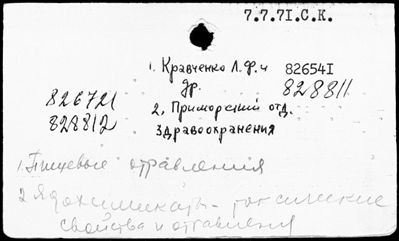 7.7.7I.С.К.
1. Кравченко Л.Ф. и 82654I
др. 828811
826721
828812
2, Приморский отд.
Здравоохранения
1. Пищевые отравления
2 Ядохимикаты - токсические
свойства и отравления